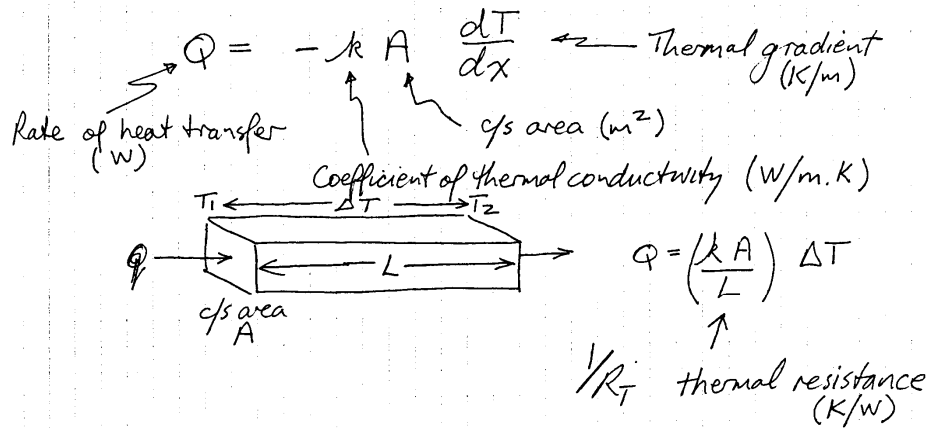 Q = - k A dT/dx ← Thermal gradient
(K/m)
Rate of heat transfer
(W)
c/s area (m²)
Coefficient of thermal conductivity (W/m.K)
T1 ← ΔT → T2
q → ← L → →
c/s area
A
Q = (k A / L) ΔT
1/RT thermal resistance
(K/W)